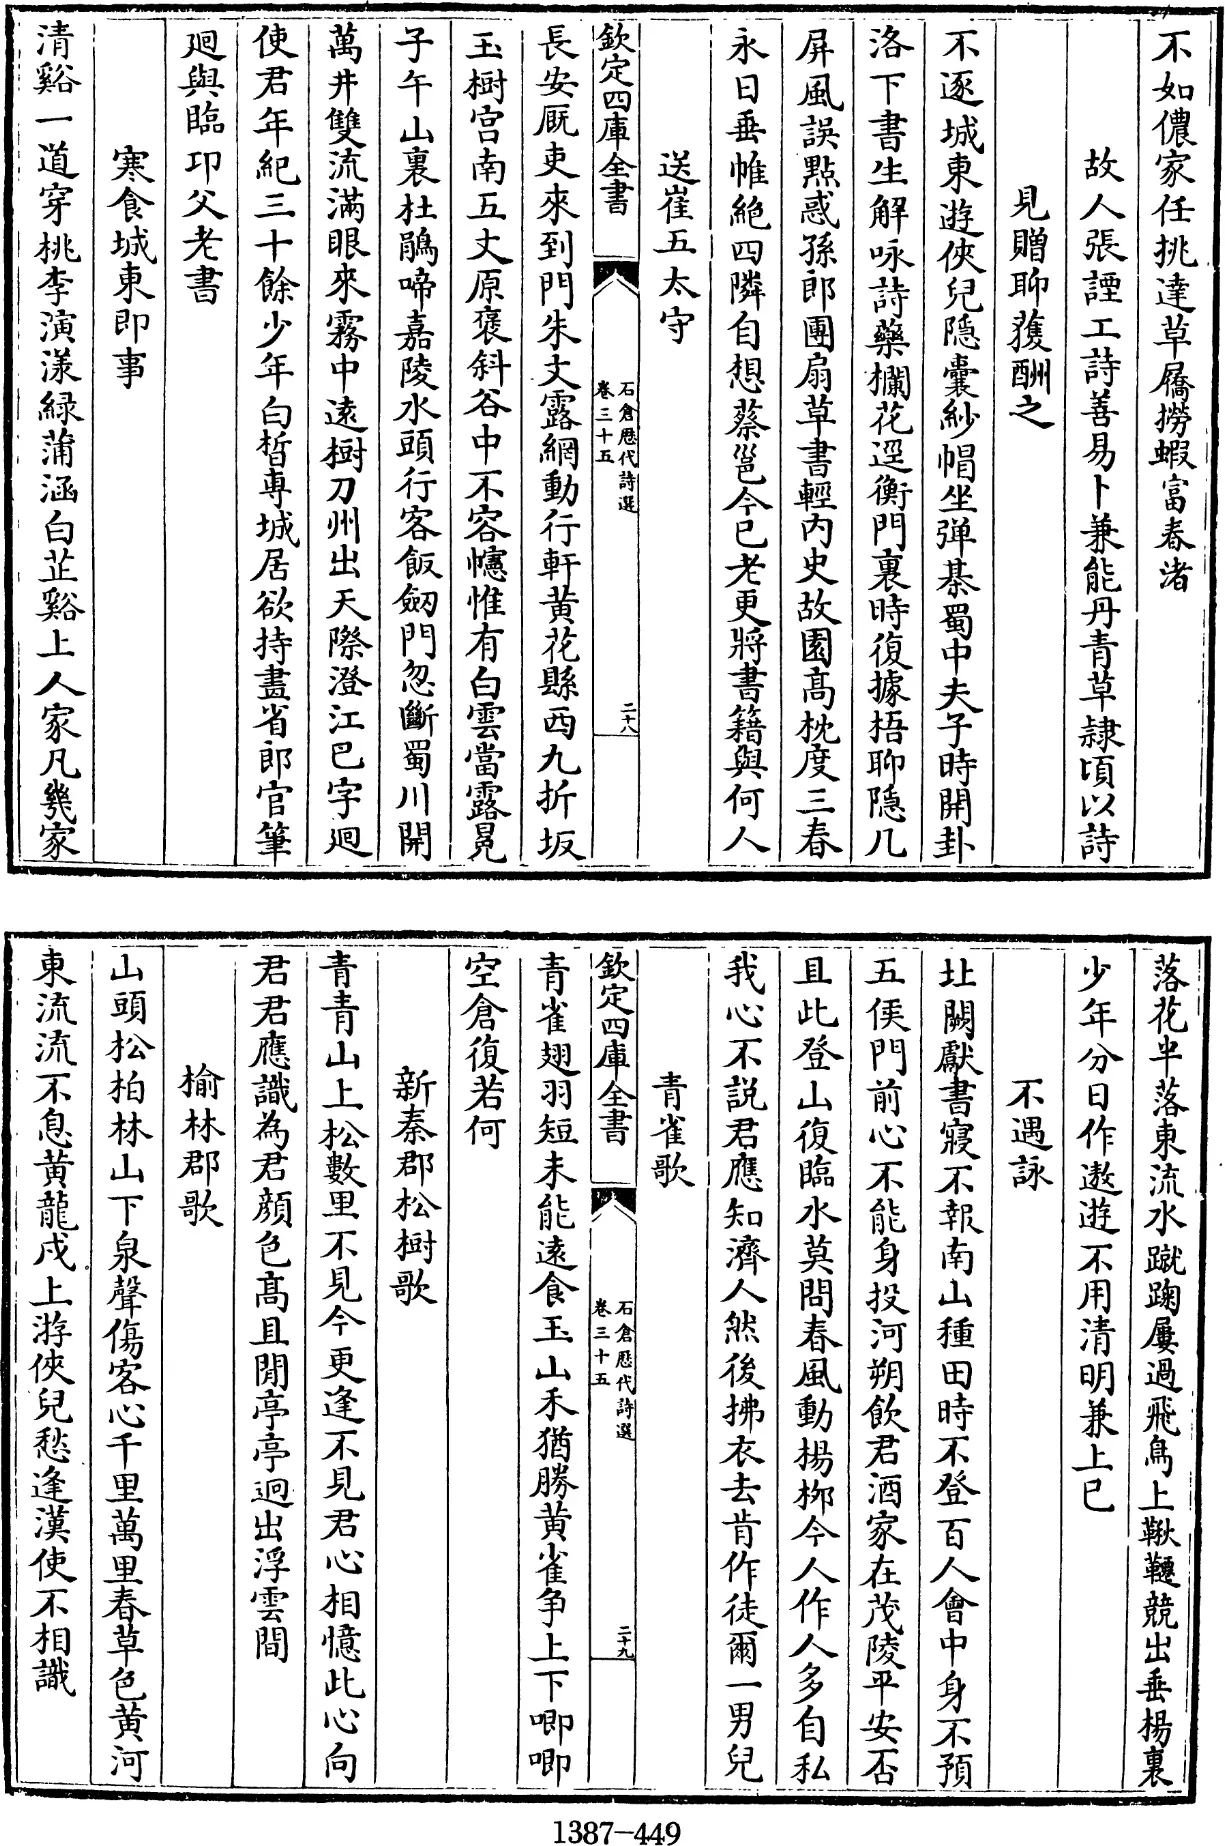 不如儂家任挑達草屩撈蝦富春渚
故人張諲工詩善易卜兼能丹青草隷頃以詩
見贈聊獲酬之
不逐城東遊俠兒隠囊紗帽坐弹棊蜀中夫子時開卦
洛下書生解咏詩藥欄花逕衡門裏時復據梧聊隠几
屏風誤點惑孫郎團扇草書輕内史故園髙枕度三春
永日垂帷絶四隣自想蔡邕今已老更將書籍與何人
送崔五太守
欽定四庫全書
石倉歷代詩選
卷三十五
二十八
長安厩吏來到門朱文露網動行軒黄花縣西九折坂
玉樹宫南五丈原褒斜谷中不容幰惟有白雲當露冕
子午山裏杜鵑啼嘉陵水頭行客飯劒門忽斷蜀川開
萬井雙流滿眼來霧中遠樹刀州出天際澄江巴字迴
使君年紀三十餘少年白皙専城居欲持畫省郎官筆
迴與臨卭父老書
寒食城東即事
清谿一道穿桃李演漾緑蒲涵白芷谿上人家凡幾家
落花半落東流水蹴踘屢過飛鳥上鞦韆競出垂楊裏
少年分日作遨遊不用清明兼上巳
不遇詠
北闕獻書寢不報南山種田時不登百人會中身不預
五侯門前心不能身投河朔飲君酒家在茂陵平安否
且此登山復臨水莫問春風動楊柳今人作人多自私
我心不説君應知濟人然後拂衣去肯作徒爾一男兒
青雀歌
欽定四庫全書
石倉歷代詩選
卷三十五
二十九
青雀翅羽短未能遠食玉山禾猶勝黄雀争上下唧唧
空倉復若何
新秦郡松樹歌
青青山上松數里不見今更逢不見君心相憶此心向
君君應識為君顔色髙且閒亭亭迥出浮雲間
榆林郡歌
山頭松柏林山下泉聲傷客心千里萬里春草色黄河
東流流不息黄龍戍上游俠兒愁逢漢使不相識
1387-449